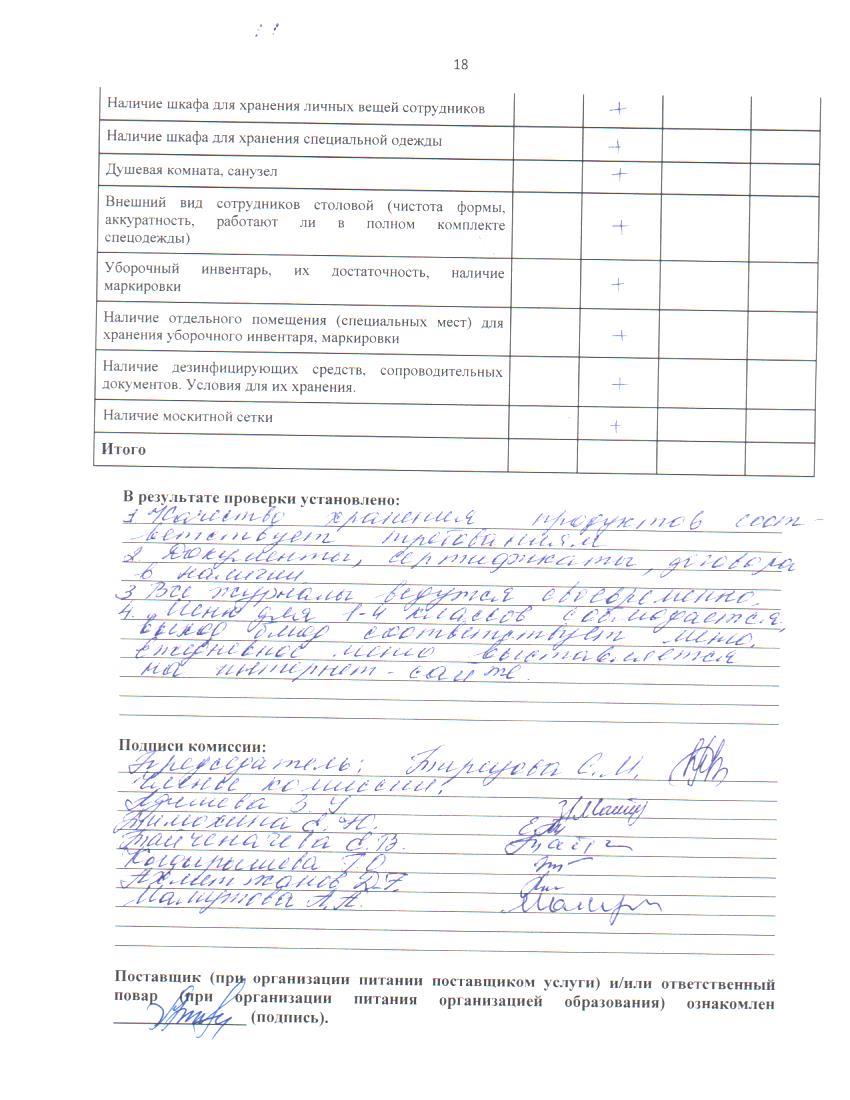 18
Наличие шкафа для хранения личных вещей сотрудников +
Наличие шкафа для хранения специальной одежды +
Душевая комната, санузел +
Внешний вид сотрудников столовой (чистота формы,
аккуратность, работают ли в полном комплекте +
спецодежды)
Уборочный инвентарь, их достаточность, наличие +
маркировки
Наличие отдельного помещения (специальных мест) для +
хранения уборочного инвентаря, маркировки
Наличие дезинфицирующих средств, сопроводительных +
документов. Условия для их хранения.
Наличие москитной сетки +
Итого
В результате проверки установлено:
1 Качество хранения продуктов соот-
ветствует требованиям
2 Документы, сертификаты, договора
в наличии
3 Все журналы ведутся своевременно.
4. Меню для 1-4 классов соблюдается,
выход блюд соответствует меню.
ежедневное меню выставляется
на интернет-сайте.
Подписи комиссии:
Председатель: С.М.
Члены комиссии:
З.У
Е.Н.
Тайченачева Е.В.
Кыдырышева Т.О
Ахметжанов Д.Г.
А.А.
Поставщик (при организации питании поставщиком услуги) и/или ответственный
повар (при организации питания организацией образования) ознакомлен
(подпись).